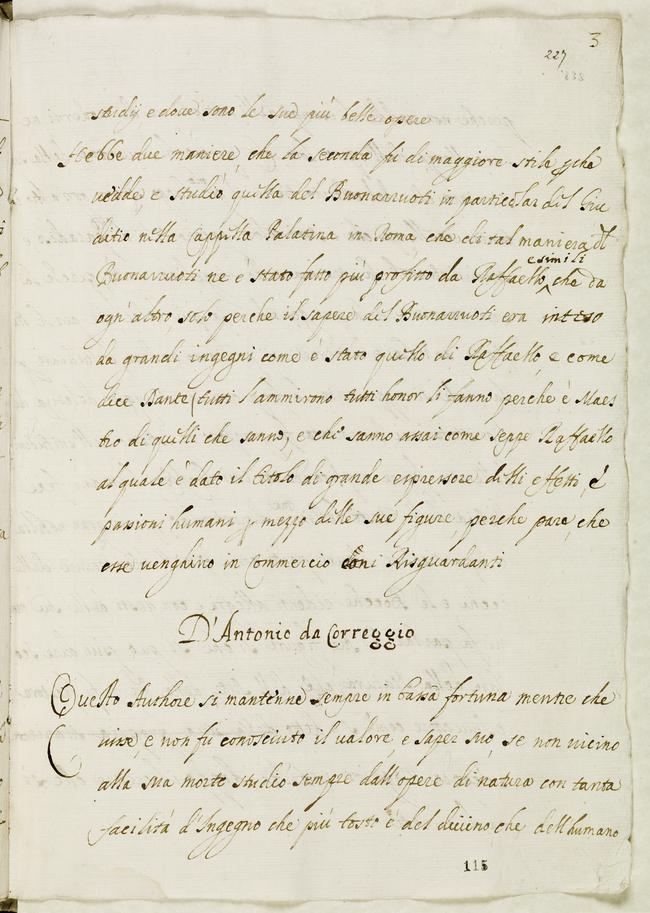 3
227
studij e dove sono le sue più belle opere
Hebbe due maniere, che la seconda fù di maggiore stile, pche
vedde, e studiò quella del Buonarruoti in particolar del Giu
ditio nella Cappella Palatina in Roma che di tal maniera dl
e simili
Buonarruoti ne è stato fatto più profitto da Raffaello, che da
ogn'altro solo perche il sapere del Buonarruoti era inteso
da grandi ingegni come è stato quello di Raffaello, e come
dice Dante (tutti l'ammirono tutti honor li fanno perche è Maes
tro di quelli che sanno, e chi sanno assai come seppe Raffaello
al quale è dato il titolo di grande espressore delli effetti, è
passioni humani p mezzo delle sue figure, perche pare, che
esse venghino in Commercio coni Risguardanti
D'Antonio da Correggio
Questo Authore si mantenne sempre in bassa fortuna mentre che
visse, e non fu conosciuto il valore, e saper suo, se non vicino
alla sua morte studiò sempre dall'opere di natura con tanta
facilità d'Ingegno che più tosto è del divino che dell'humano
115